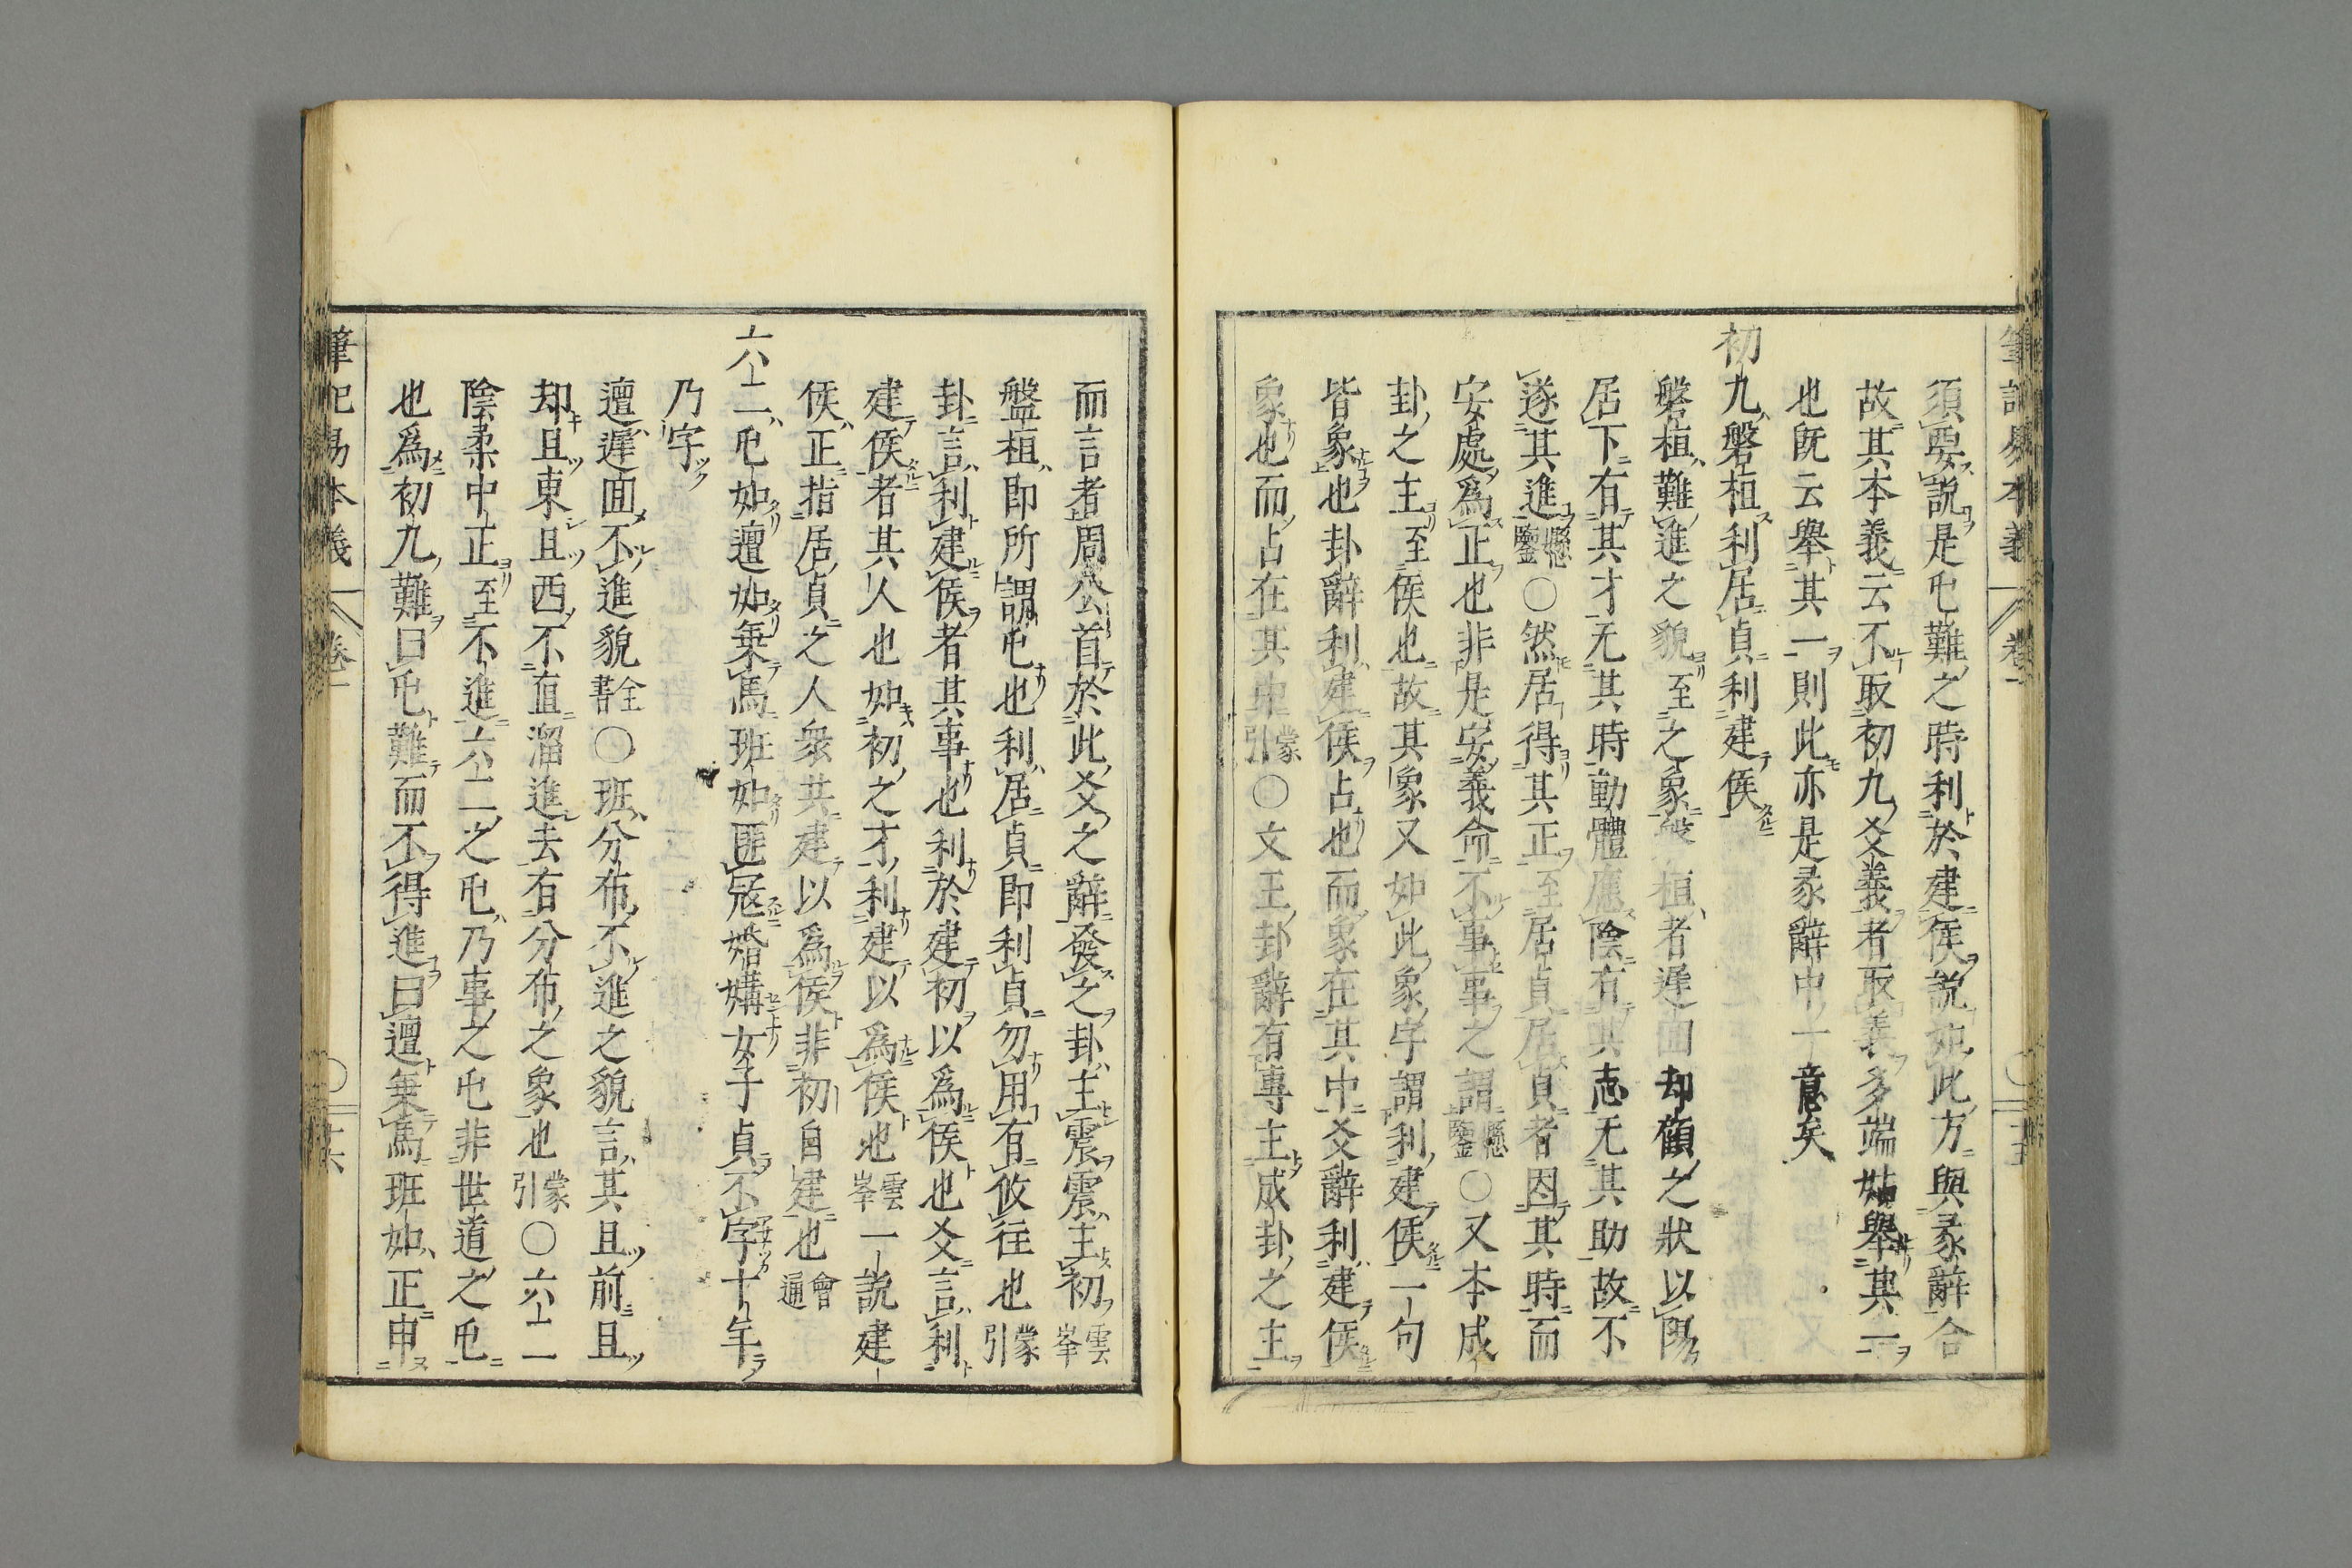 須要說是屯難之時利於建侯說如此方與彖辭合
故其本義云不取初九爻義者取義多端姑舉其一
也旣云舉其一則此亦是彖辭中一意矣
初九磐桓利居貞利建侯
磐桓難進之貌至之象磐桓者遲回却顧之狀以陽
居下有其才无其時動體應陰有其志无其助故不
遂其進懸鑒〇然居得其正至居貞居貞者因其時而
安處爲正也非是安義命不事事之謂懸鑒〇又本成
卦之主至侯也故其象又如此象字謂利建侯一句
皆象也卦辭利建侯占也而象在其中爻辭利建侯
象也而占在其中蒙引〇文王卦辭有專主成卦之主
而言者周公首於此爻之辭發之卦主震震主初雲峯
盤桓即所謂屯也利居貞即利貞勿用有攸往也蒙引
卦言利建侯者其事也利於建初以爲侯也爻言利
建侯者其人也如初之才利建以爲侯也雲峯一說建
侯正指居貞之人衆共建以爲侯非初自建也會通
六二屯如邅如乗馬班如匪冦婚媾女子貞不字十年
乃字
邅遲回不進貌全書〇班分布不進之貌言其且前且
却且東且西不直溜進去有分布之象也蒙引〇六二
陰柔中正至不進六二之屯乃事之屯非世道之屯
也爲初九難曰屯難而不得進曰邅乗馬班如正申
筆記易本義 卷一